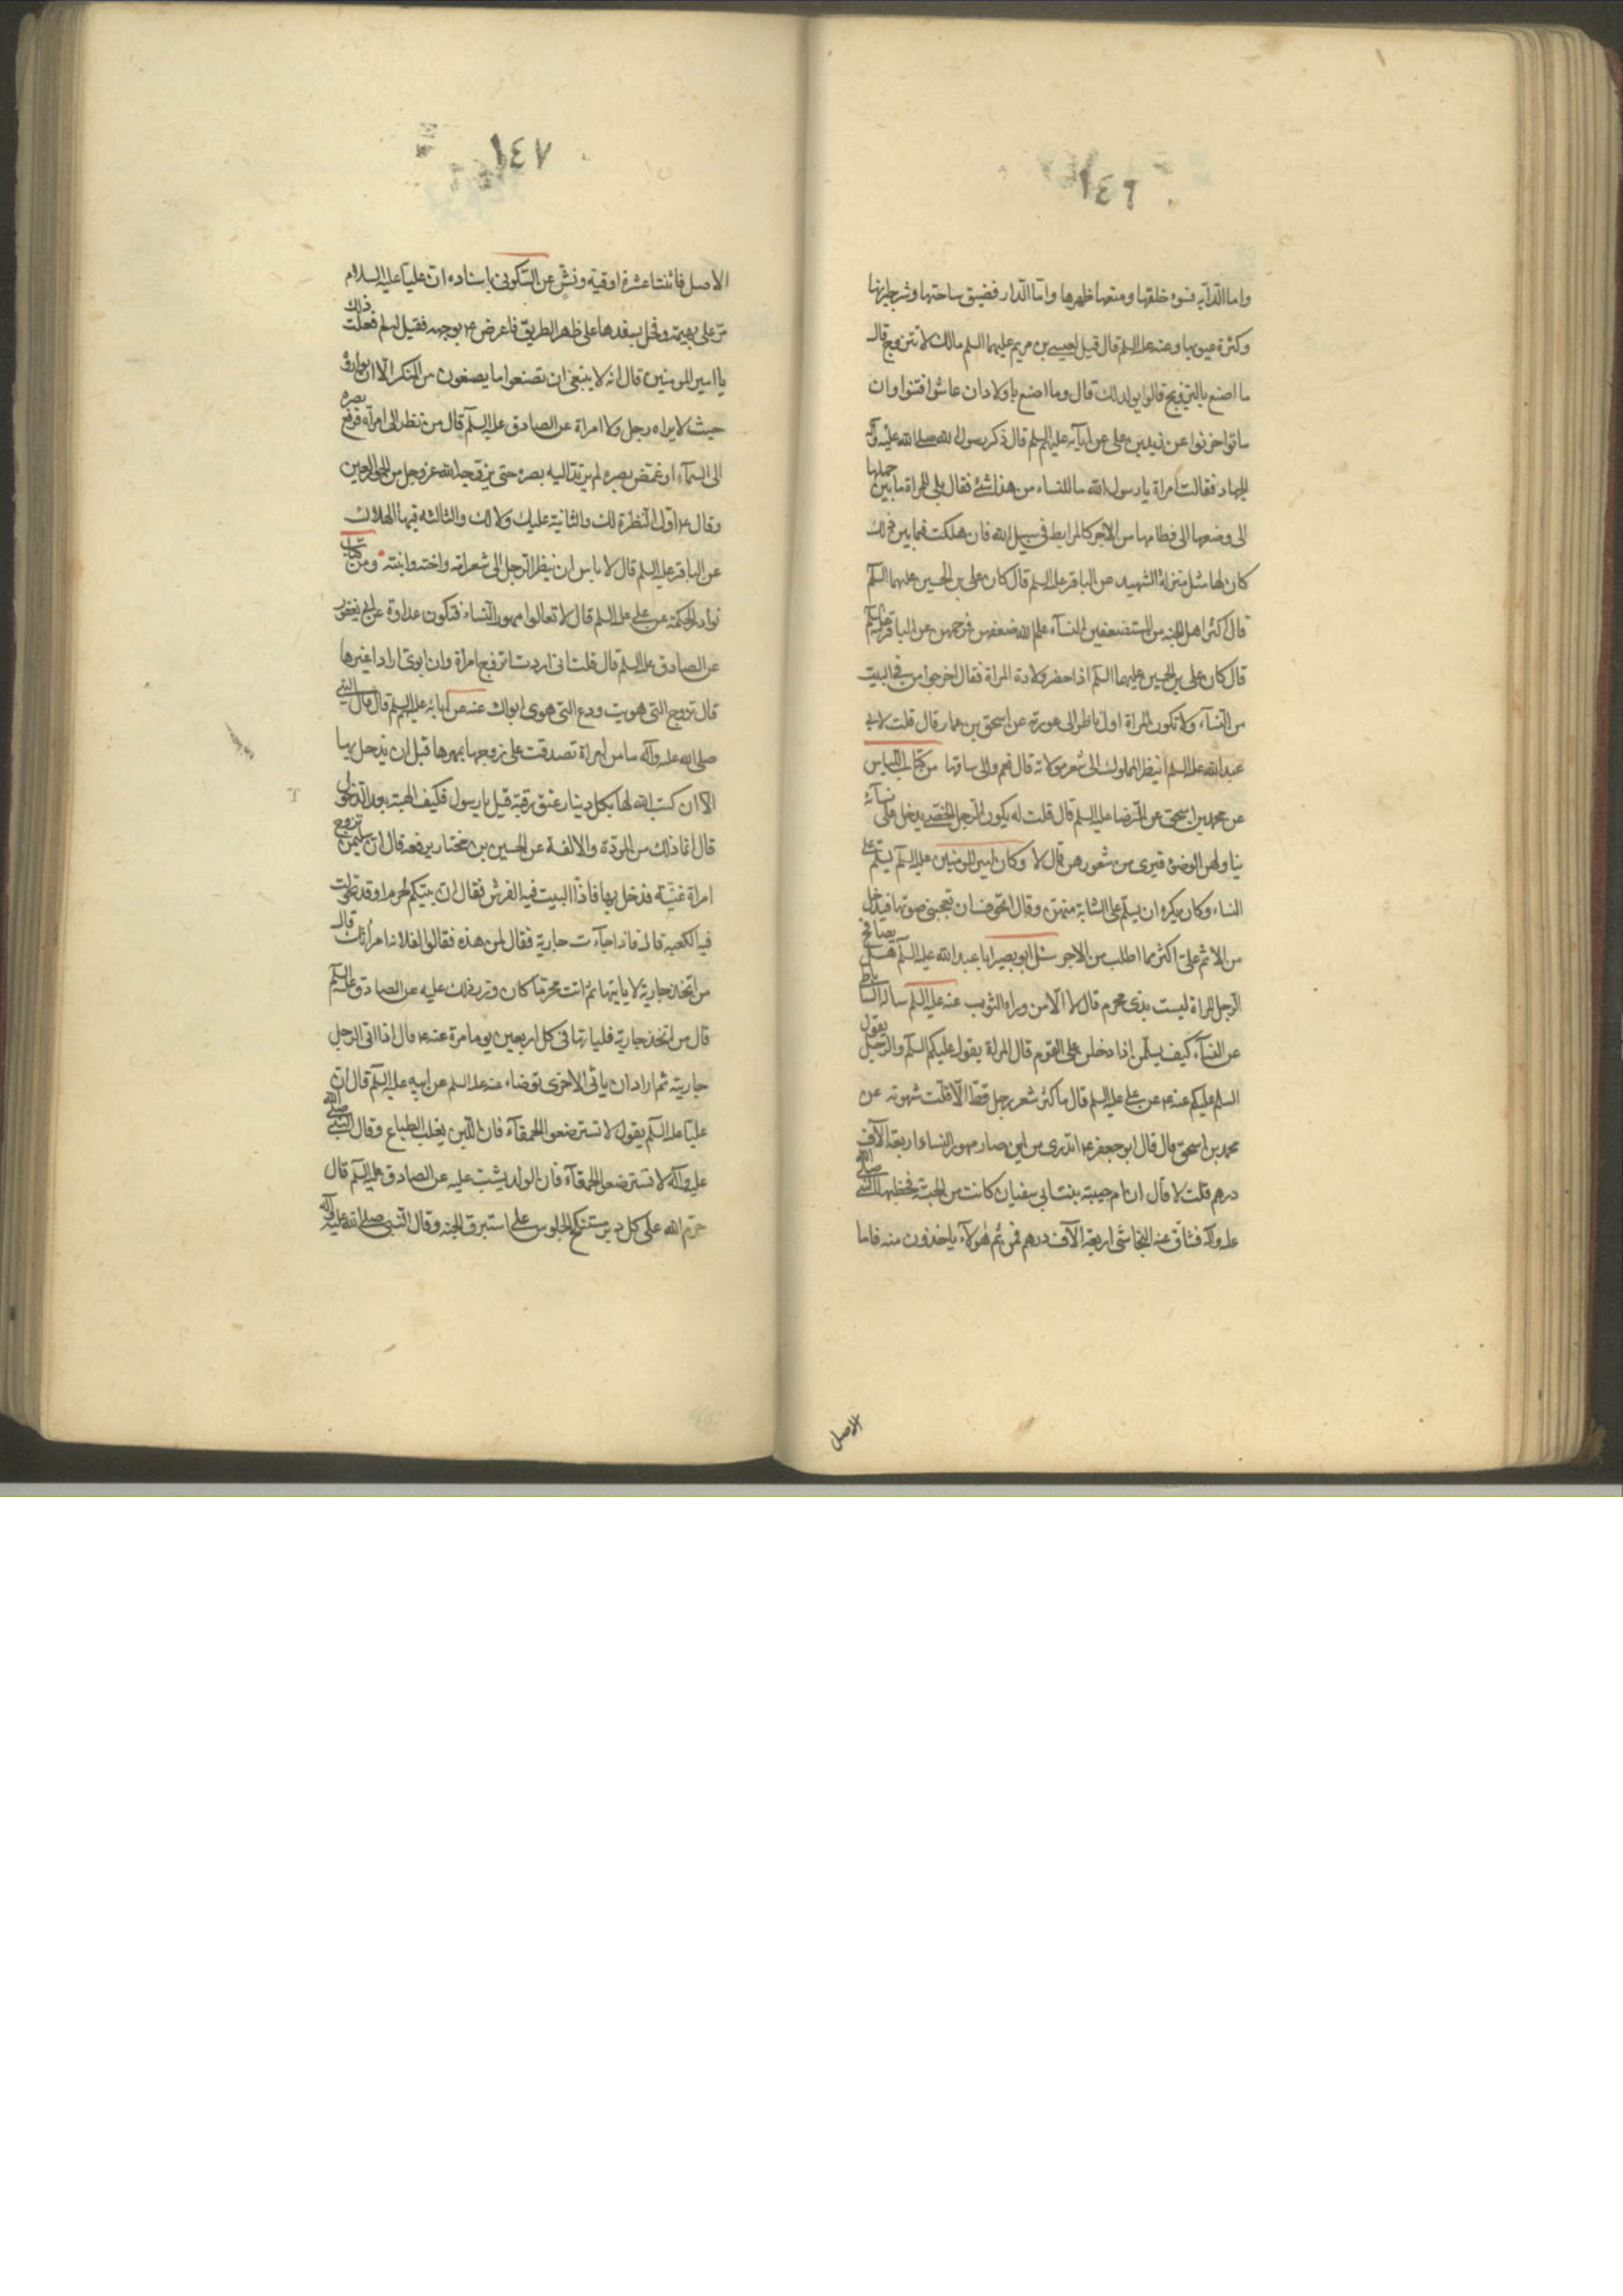 ١٤٦
واما الدآبه فسوء خلقها ومنعها ظهرها واما الدار فضيق ساحتها وشر جيرانها
وكثرة عيوبها وعنه عليه السلم قال قيل لعيسى بن مريم عليهما السلم مالك لا تتزوج قال
ما اصنع بالتزويج قالوا يولد لك قال وما اصنع باولاد ان عاشوا فتنوا وان
ماتوا حزنوا عن زيد بن على عن ابآئه عليهم السلم قال ذكر رسول الله صلى الله عليه وآله
الجهاد فقالت امراة يا رسول الله ما للنساء من هذا شئ فقال بلى للمراة ما بين حملها
الى وضعها الى فطامها من الاجر كالمرابط فى سبيل الله فان هلكت فيما بين ذلك
كان لها مثل منزلة الشهيد عن الباقر عليه السلم قال كان على بن الحسين عليهما السلم
قال اكثر اهل الجنه من المستضعفين النسآء علم الله ضعفهن فرحمهن عن الباقر عليه السلم
قال كان على بن الحسين عليهما السلم اذا حضر ولادة المراة فقال اخرجوا من فى البيت
من النسآء ولا تكون المراة اول ناظر الى عورته عن اسحق بن عمار قال قلت لابى
عبد الله عليه السلم اينظر المملوك الى شعر مولاته قال نعم والى ساقها من كتاب اللباس
عن محمد بن اسحق عن الرضا عليه السلم قال قلت له يكون الرجل الخصى يدخل على نسآئه
يناولهن الوضوء فيرى من شعورهن قال لا وكان امير المومنين عليه السلم يسلم على
النساء وكان يكره ان يسلم على الشابة منهن وقال اتخوف ان تعجبنى صوتها فيدخل
من الاثم على اكثر مما اطلب من الاجر سئل ابو بصير ابا عبد الله عليه السلم هل يصافح
الرجل المراة ليست بذى محرم قال لا الا من وراء الثوب عنه عليه السلم ساله الساباطى
عن النسآء كيف يسلمن اذا دخلن على القوم قال المراة يقول عليكم السلم والرجل يقول
السلم عليكم عنه ع عن على عليه السلم قال ما كثر شعر رجل قط الا قلت شهوته عن
محمد بن اسحق قال قال ابو جعفر ع اتدرى من اين صار مهور النساء اربعة آلاف
درهم قلت لا قال ان ام حبيبة بنت ابى سفيان كانت من الحبشة فخطبها النبى صلى الله
عليه وآله فساق عنه النجاشى اربعة آلاف درهم فمن ثم هولآء ياخذون منه فاما
الاصل
١٤٧
الاصل فاثنتا عشرة اوقية ونش عن السكونى باسناده ان عليا عليه السلام
مر على بهيمة وفحل يسفدها على ظهر الطريق فاعرض ع بوجهه فقيل له لم فعلت ذلك
يا امير المومنين قال انه لا ينبغى ان تصنعوا ما يصنعون من المنكر الا ان يواروه
حيث لا يراه رجل ولا امراة عن الصادق عليه السلم قال من نظر الى امراة فرفع بصره
الى السمآء او غمض بصره لم يرتد اليه بصره حتى يزوجه الله عز وجل من الحور العين
وقال ع اول النظرة لك والثانية عليك ولا لك والثالثه فيها الهلاك
عن الباقر عليه السلم قال لا باس ان ينظر الرجل الى شعر امه واخته وابنته ومن كتاب
نوادر الحكمة عن على عليه السلم قال لا تغالوا مهور النساء فتكون عداوة عن ابى يعفور
عن الصادق عليه السلم قال قلت انى اردت اتزوج امراة وان ابوى ارادا غيرها
قال تزوج التى هويت ودع التى هوى ابواك عنه عن آبائه عليهم السلم قال قال النبى
صلى الله عليه وآله ما من امراة تصدقت على زوجها بمهرها قبل ان يدخل بها
الا ان كتب الله لها بكل دينار عتق رقبة قيل يا رسول فكيف الهبة بعد الدخول
قال انما ذلك من المودة والالفة عن الحسين بن مختار يرفعه قال ان سليمن تزوج
امراة غنية فدخل بها فاذا البيت فيه الفرش فقال ان بيتكم لمحرم او قد تحولت
فيه الكعبه قال فاذا جآءت جارية فقال لمن هذه فقالوا لفلانه امراتك قال
من اتخذ جارية لا ياتيها ثم اتت محرما كان وزر ذلك عليه عن الصادق عليه السلم
قال من اتخذ جارية فلياتها فى كل اربعين يوما مرة عنه ع قال اذا اتى الرجل
جاريته ثم اراد ان ياتى الاخرى توضاء عنه عليه السلم عن ابيه عليه السلم قال ان
عليا عليه السلم يقول لا تسترضعوا الحمقآء فان اللبن يغلب الطباع وقال النبى صلى الله
عليه وآله لا تسترضعوا الحمقآء فان الولد يشب عليه عن الصادق عليه السلم قال
حرم الله على كل دبر مستنكح الجلوس على استبرق الجنه وقال النبى صلى الله عليه وآله